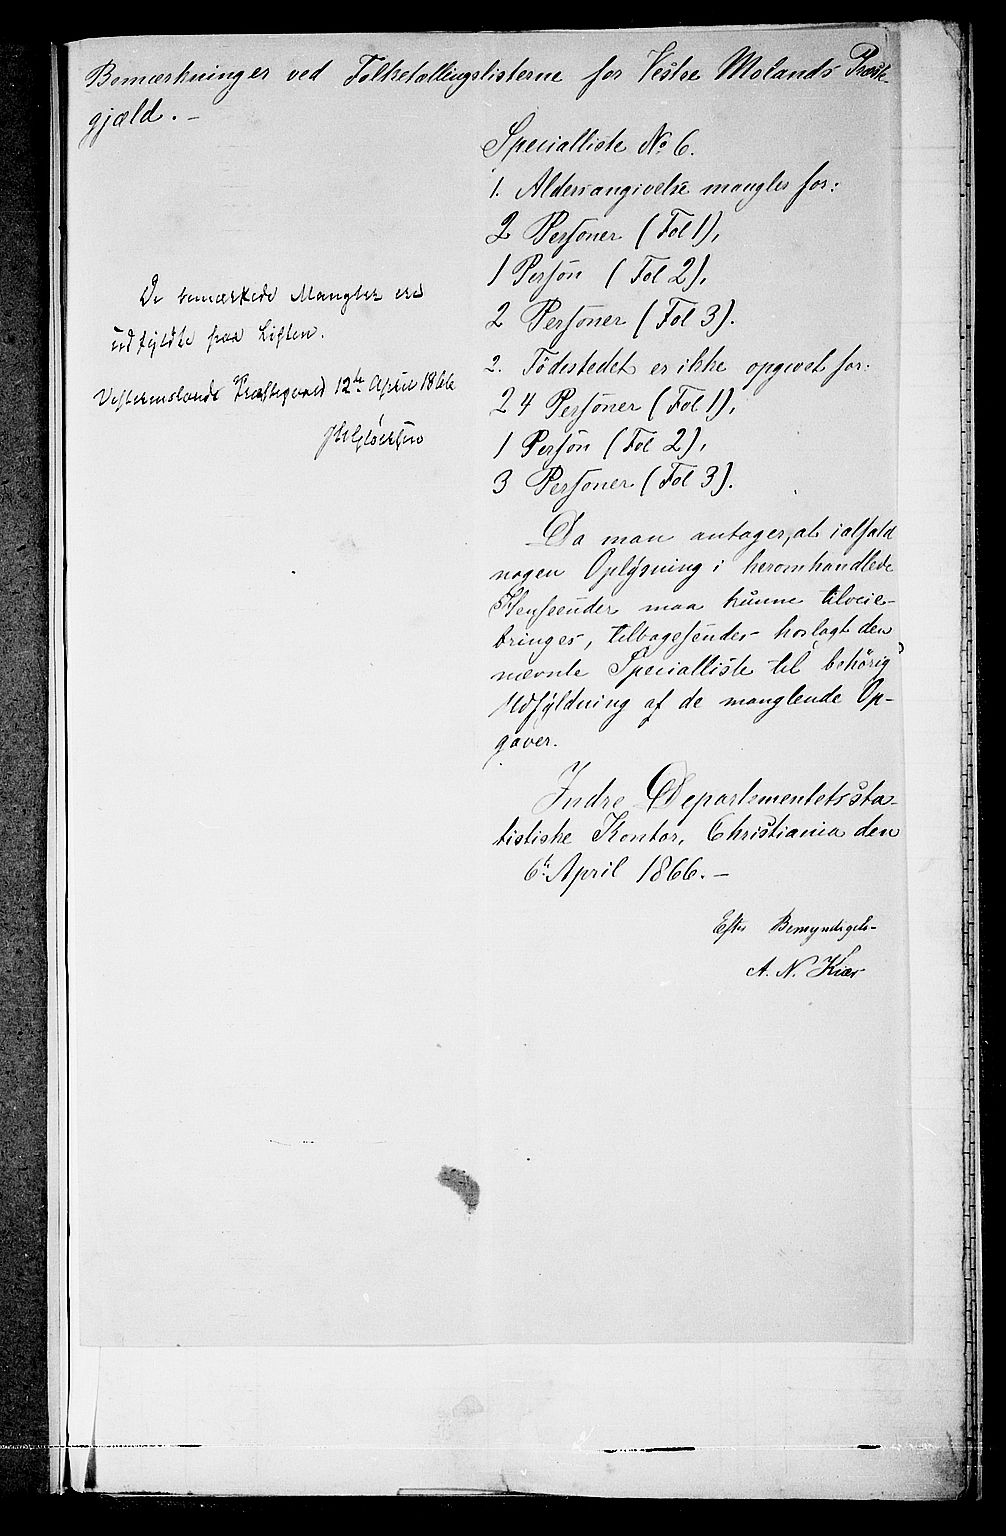 Bemærkninger ved Folketællingslisterne for Vestre Molands Præste-
gjæld. -
Specialliste No 6.
1. Aldersangivelse mangler for:
2 Personer (Fol 1),
1 Person (Fol 2),
2 Personer (Fol 3).
2. Födestedet er ikke opgivet for:
24 Personer (Fol 1),
1 Person (Fol 2),
3 Personer (Fol 3).
Da man antager, at ialfald
nogen Oplysning i heromhandlede
Henseender maa kunne tilveie-
bringes, tilbagesendes hoslagt den
nævnte Specialliste til behörig
Udfyldning af de manglende Op-
gaver.
Indre Departementets sta-
tistiske Kontor, Christiania den
6te April 1866. -
Efter Bemyndigelse
A. N. Kiær
De bemærkede Mangler ere
udfyldte paa Listen.
Vestremolands Præstegaard 12te April 1866